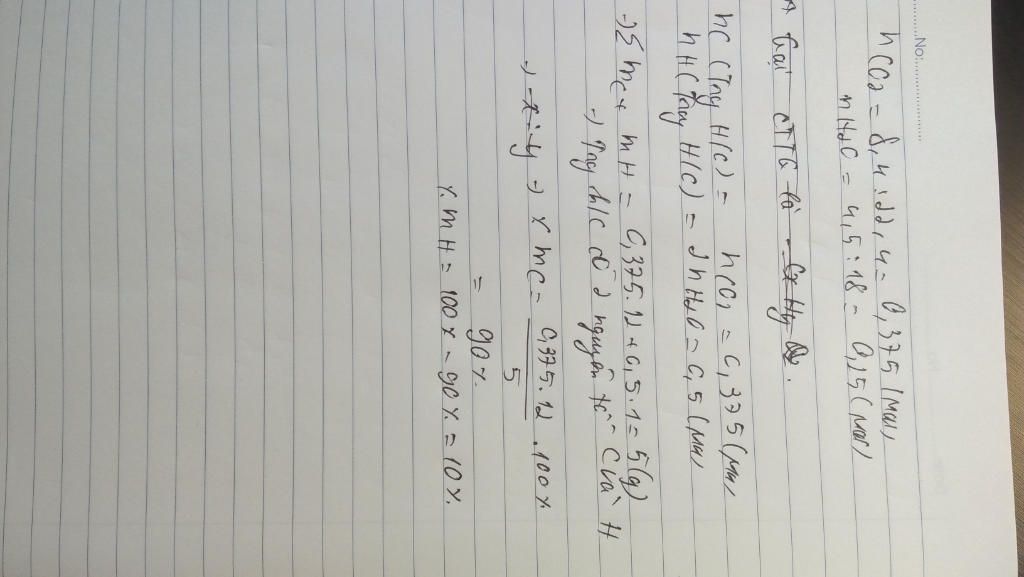 No:
nCO2 = 8,4 : 22,4 = 0,375 (mol)
nH2O = 4,5 : 18 = 0,25 (mol)
Gọi CTTQ là CxHyOz.
nC (Tng H/C) = nCO2 = 0,375 (mol)
nH (Tng H/C) = 2nH2O = 0,5 (mol)
→ Σ mC + mH = 0,375.12 + 0,5.1 = 5 (g)
→ Tng h/c có 2 nguyên tố C và H
→ x:y → % mC = 0,375.12 / 5 .100%
= 90%.
% mH = 100% - 90% = 10%.